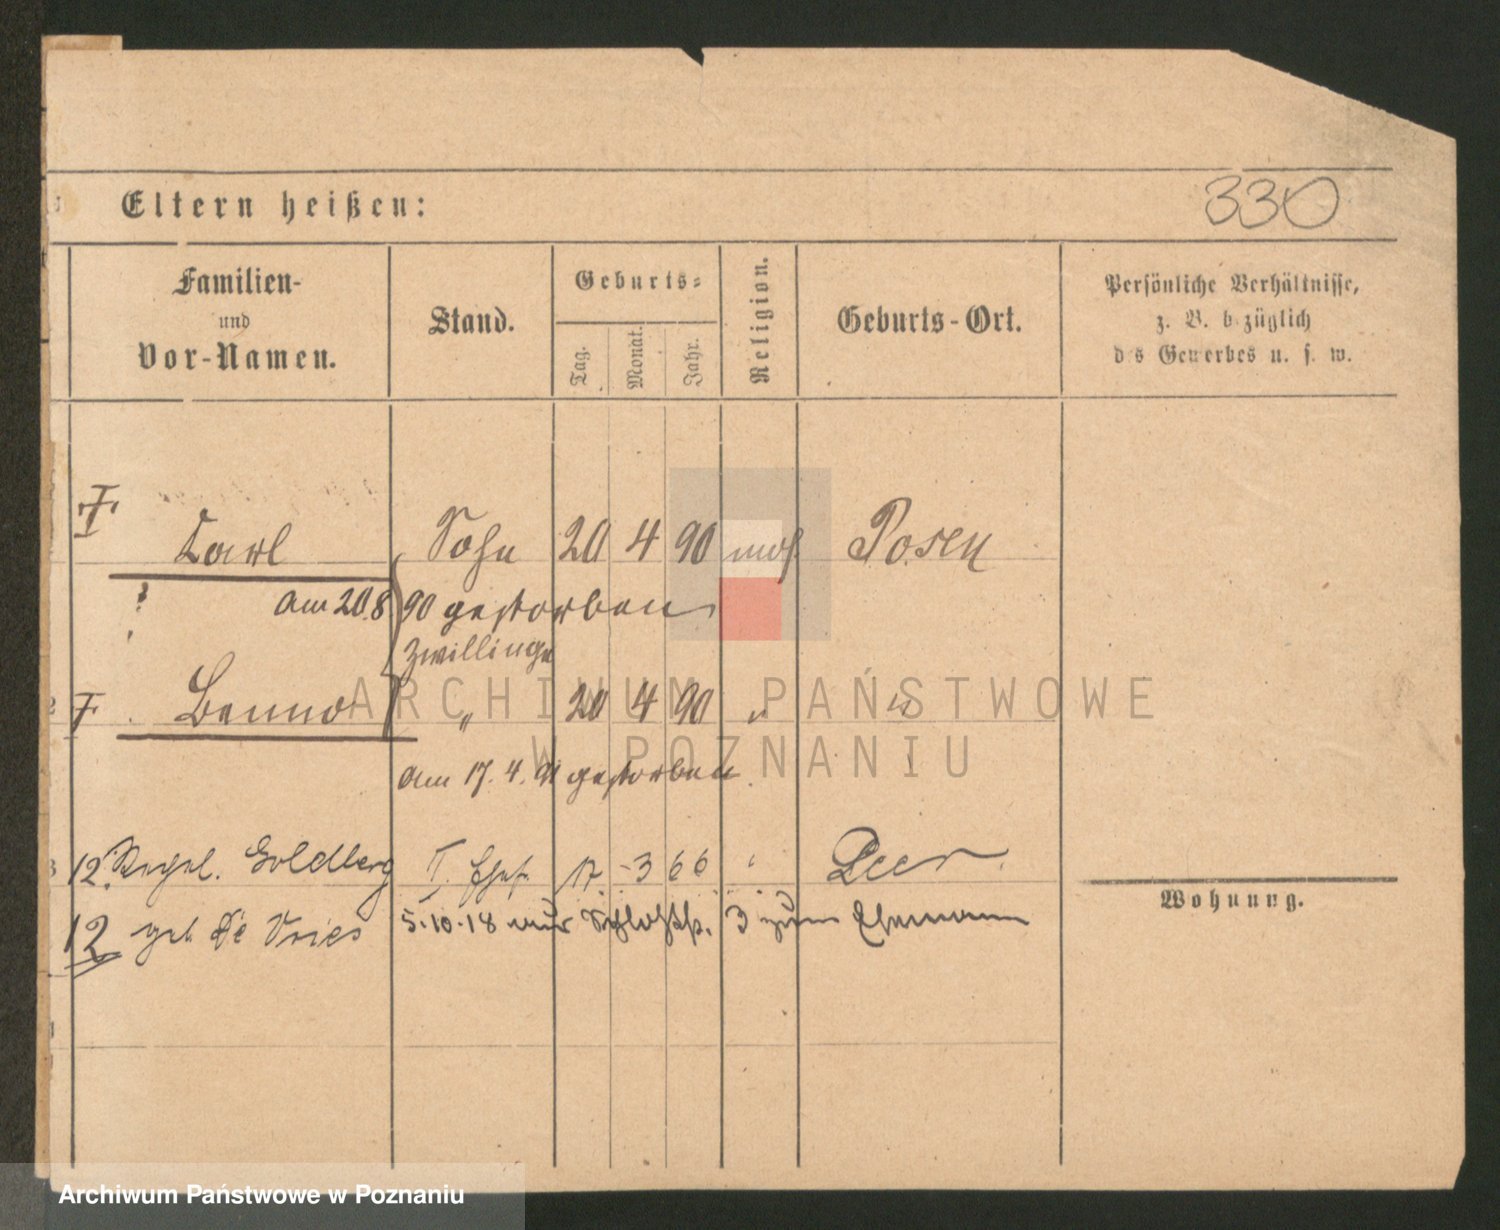 330
Eltern heißen:
Familien- und Vor-Namen.
Stand.
Geburts-
Tag. Monat. Jahr.
Religion.
Geburts-Ort.
Persönliche Verhältnisse,
z. B. bezüglich
des Gewerbes u. s. w.
Karl Sohn 20 4 90 mos. Posen
am 20.8 90 gestorben
Zwillinge
Benno " 20 4 90 " "
am 17. 4. 91 gestorben
12. Goldberg II. Ehefr. 17. 3 66 " Leer
12 geb. De Vries 5.10.18 3 zum Ehemann
Wohnung.
ARCHIWUM PAŃSTWOWE
W POZNANIU
Archiwum Państwowe w Poznaniu